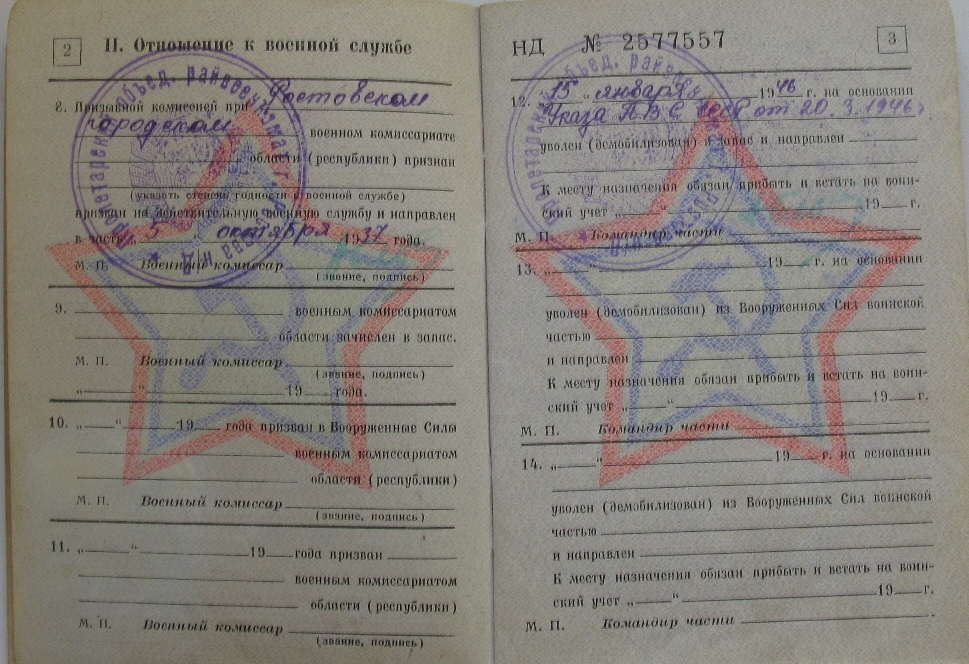 2
II. Отношение к военной службе
8. Призывной комиссией при Ростовском
городском военном комиссариате
области (республики) признан
(указать степень годности к военной службе)
призван на действительную военную службу и направлен
в часть „ 5 " октября 1937 года.
М. П. Военный комиссар
(звание, подпись)
9. военным комиссариатом
области зачислен в запас.
М. П. Военный комиссар
(звание, подпись)
„ " 19 года.
10. „ " 19 года призван в Вооруженные Силы
военным комиссариатом
области (республики)
М. П. Военный комиссар
(звание, подпись)
11. „ " 19 года призван
военным комиссариатом
области (республики)
М. П. Военный комиссар
(звание, подпись)
НД № 2577557
3
12. „ 15 " января 1946 г. на основании
Указа П.В.С. СССР от 20.3.1946г
уволен (демобилизован) в запас и направлен
К месту назначения обязан прибыть и встать на воин-
ский учет „ " 19 г.
М. П. Командир части
13. „ " 19 г. на основании
уволен (демобилизован) из Вооруженных Сил воинской
частью
и направлен
К месту назначения обязан прибыть и встать на воин-
ский учет „ " 19 г.
М. П. Командир части
14. „ " 19 г. на основании
уволен (демобилизован) из Вооруженных Сил воинской
частью
и направлен
К месту назначения обязан прибыть и встать на воин-
ский учет „ " 19 г.
М. П. Командир части